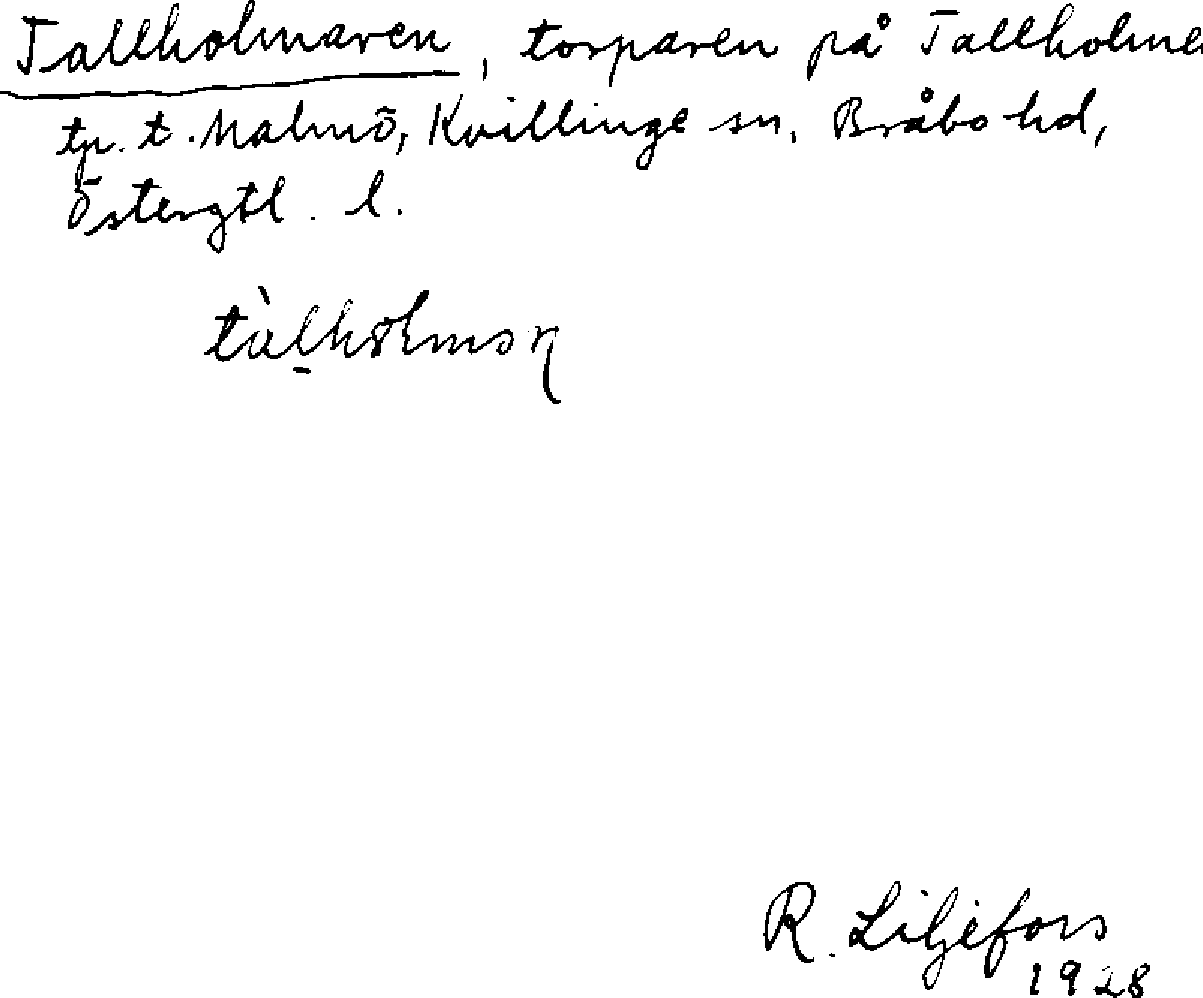 Tallholmaren, torparen på Tallholme
tp. t. Malmö, Kvillinge sn, Bråbo hd,
Östergtl. l.
R. Liljefors
1928